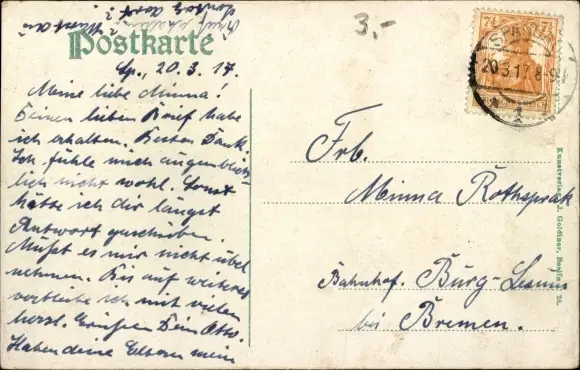 Postkarte
3,-
7½ 7½
SPANDAU
20.3.17. 8-9V
1
Sp., 20. 3. 17.
Meine liebe Minna!
Deinen lieben Brief habe
ich erhalten. Besten Dank.
Ich fühle mich augenblick-
lich nicht wohl. Sonst
hätte ich dir längst
Antwort geschrieben.
Mußt es mir nicht übel
nehmen. Bis auf weiteres
verbleibe ich mit vielen
herzl. Grüßen Dein Otto.
Haben deine Eltern mein
Frl.
Minna Rothsprak
Bahnhof. Burg-Lesum
bei Bremen.
Kunstverlag J. Goldiner, Berlin